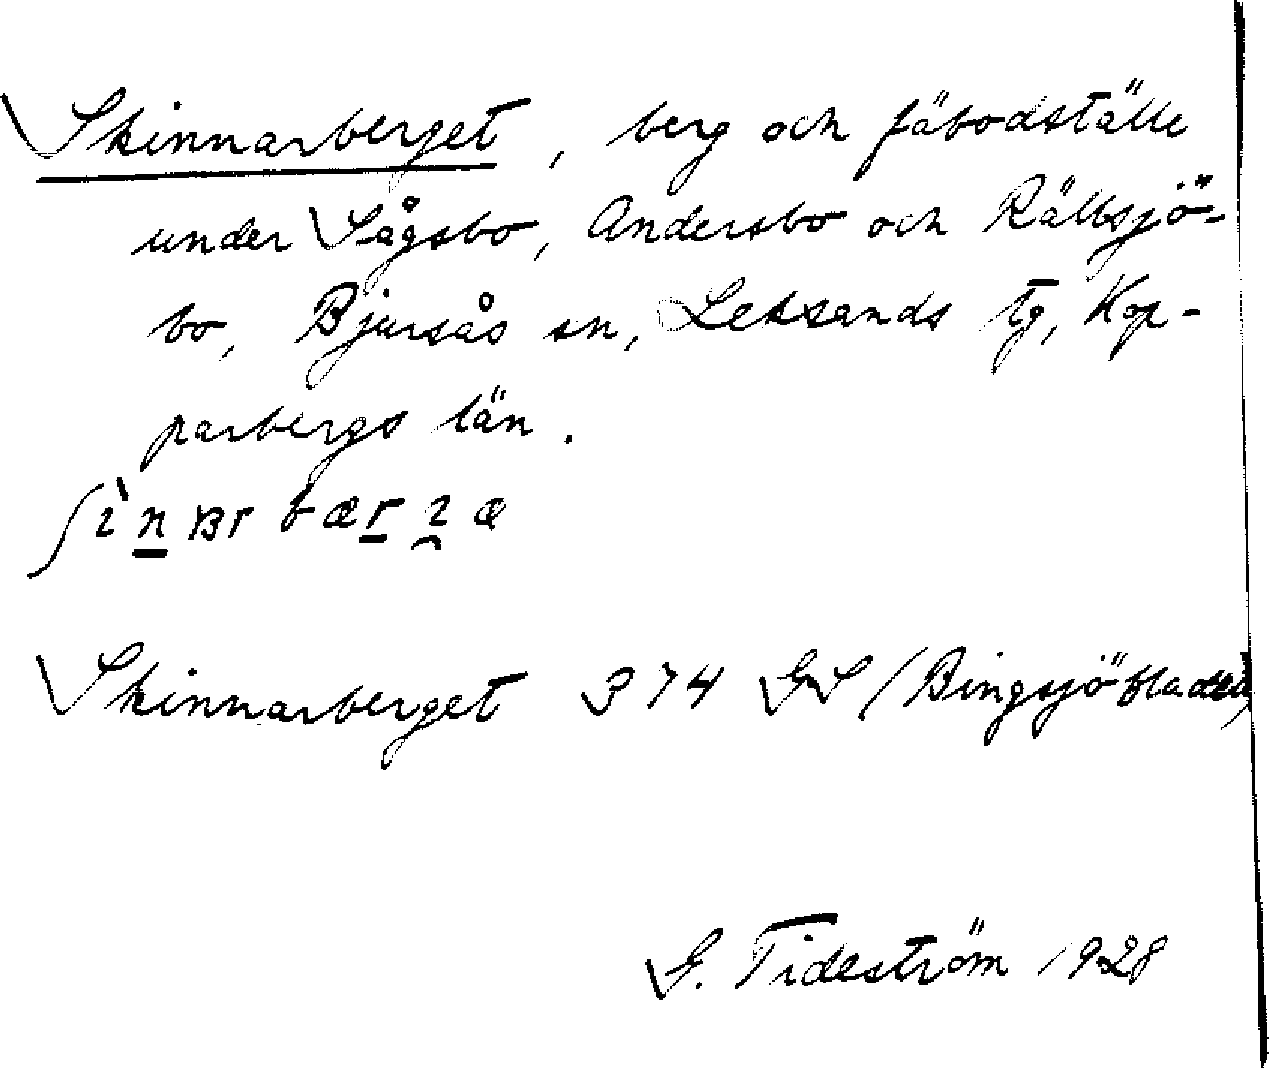 Skinnarberget, berg och fäbodställe
under Sågsbo, Andersbo och Rällsjö-
bo, Bjursås sn, Leksands tg, Kop-
parbergs län.
Skinnarberget 374 GS (Bingsjöbladet)
G. Tideström 1928